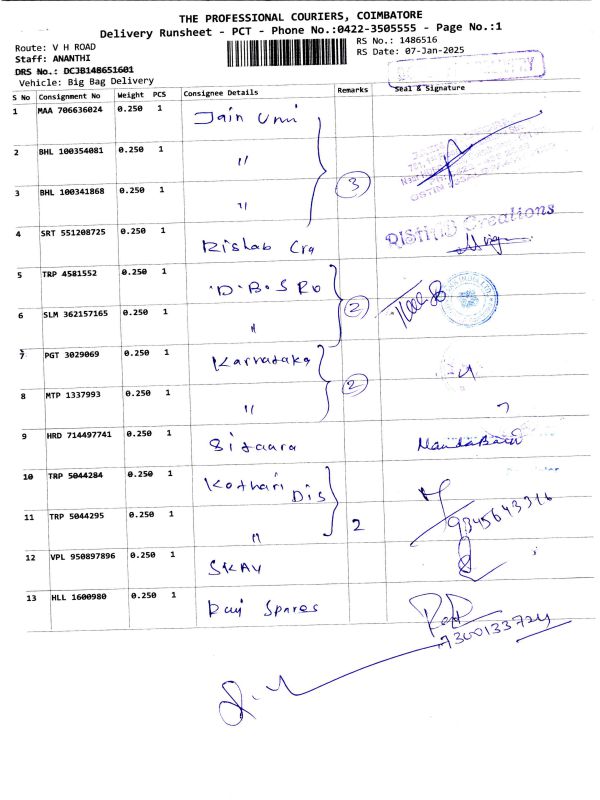 THE PROFESSIONAL COURIERS, COIMBATORE
Delivery Runsheet - PCT - Phone No.:0422-3505555 - Page No.:1
Route: V H ROAD
RS No.: 1486516
Staff: ANANTHI
RS Date: 07-Jan-2025
DRS No.: DCJB148651601
Vehicle: Big Bag Delivery
S No Consignment No Weight PCS Consignee Details Remarks Seal & Signature
1 MAA 706636024 0.250 1 Jain Uni
2 BHL 100354081 0.250 1 "
3 BHL 100341868 0.250 1 " 3
4 SRT 551208725 0.250 1 Rishab Cra Creations
5 TRP 4581552 0.250 1 D.B.S Ro
6 SLM 362157165 0.250 1 " 2
7 PGT 3029069 0.250 1 Karnataka
8 MTP 1337993 0.250 1 " 2
9 HRD 714497741 0.250 1 Sitaara
10 TRP 5044284 0.250 1 Kothari Dis
11 TRP 5044295 0.250 1 " 2 9345643216
12 VPL 950897896 0.250 1 SKAV
13 HLL 1600980 0.250 1 Raj Spares
7300133724